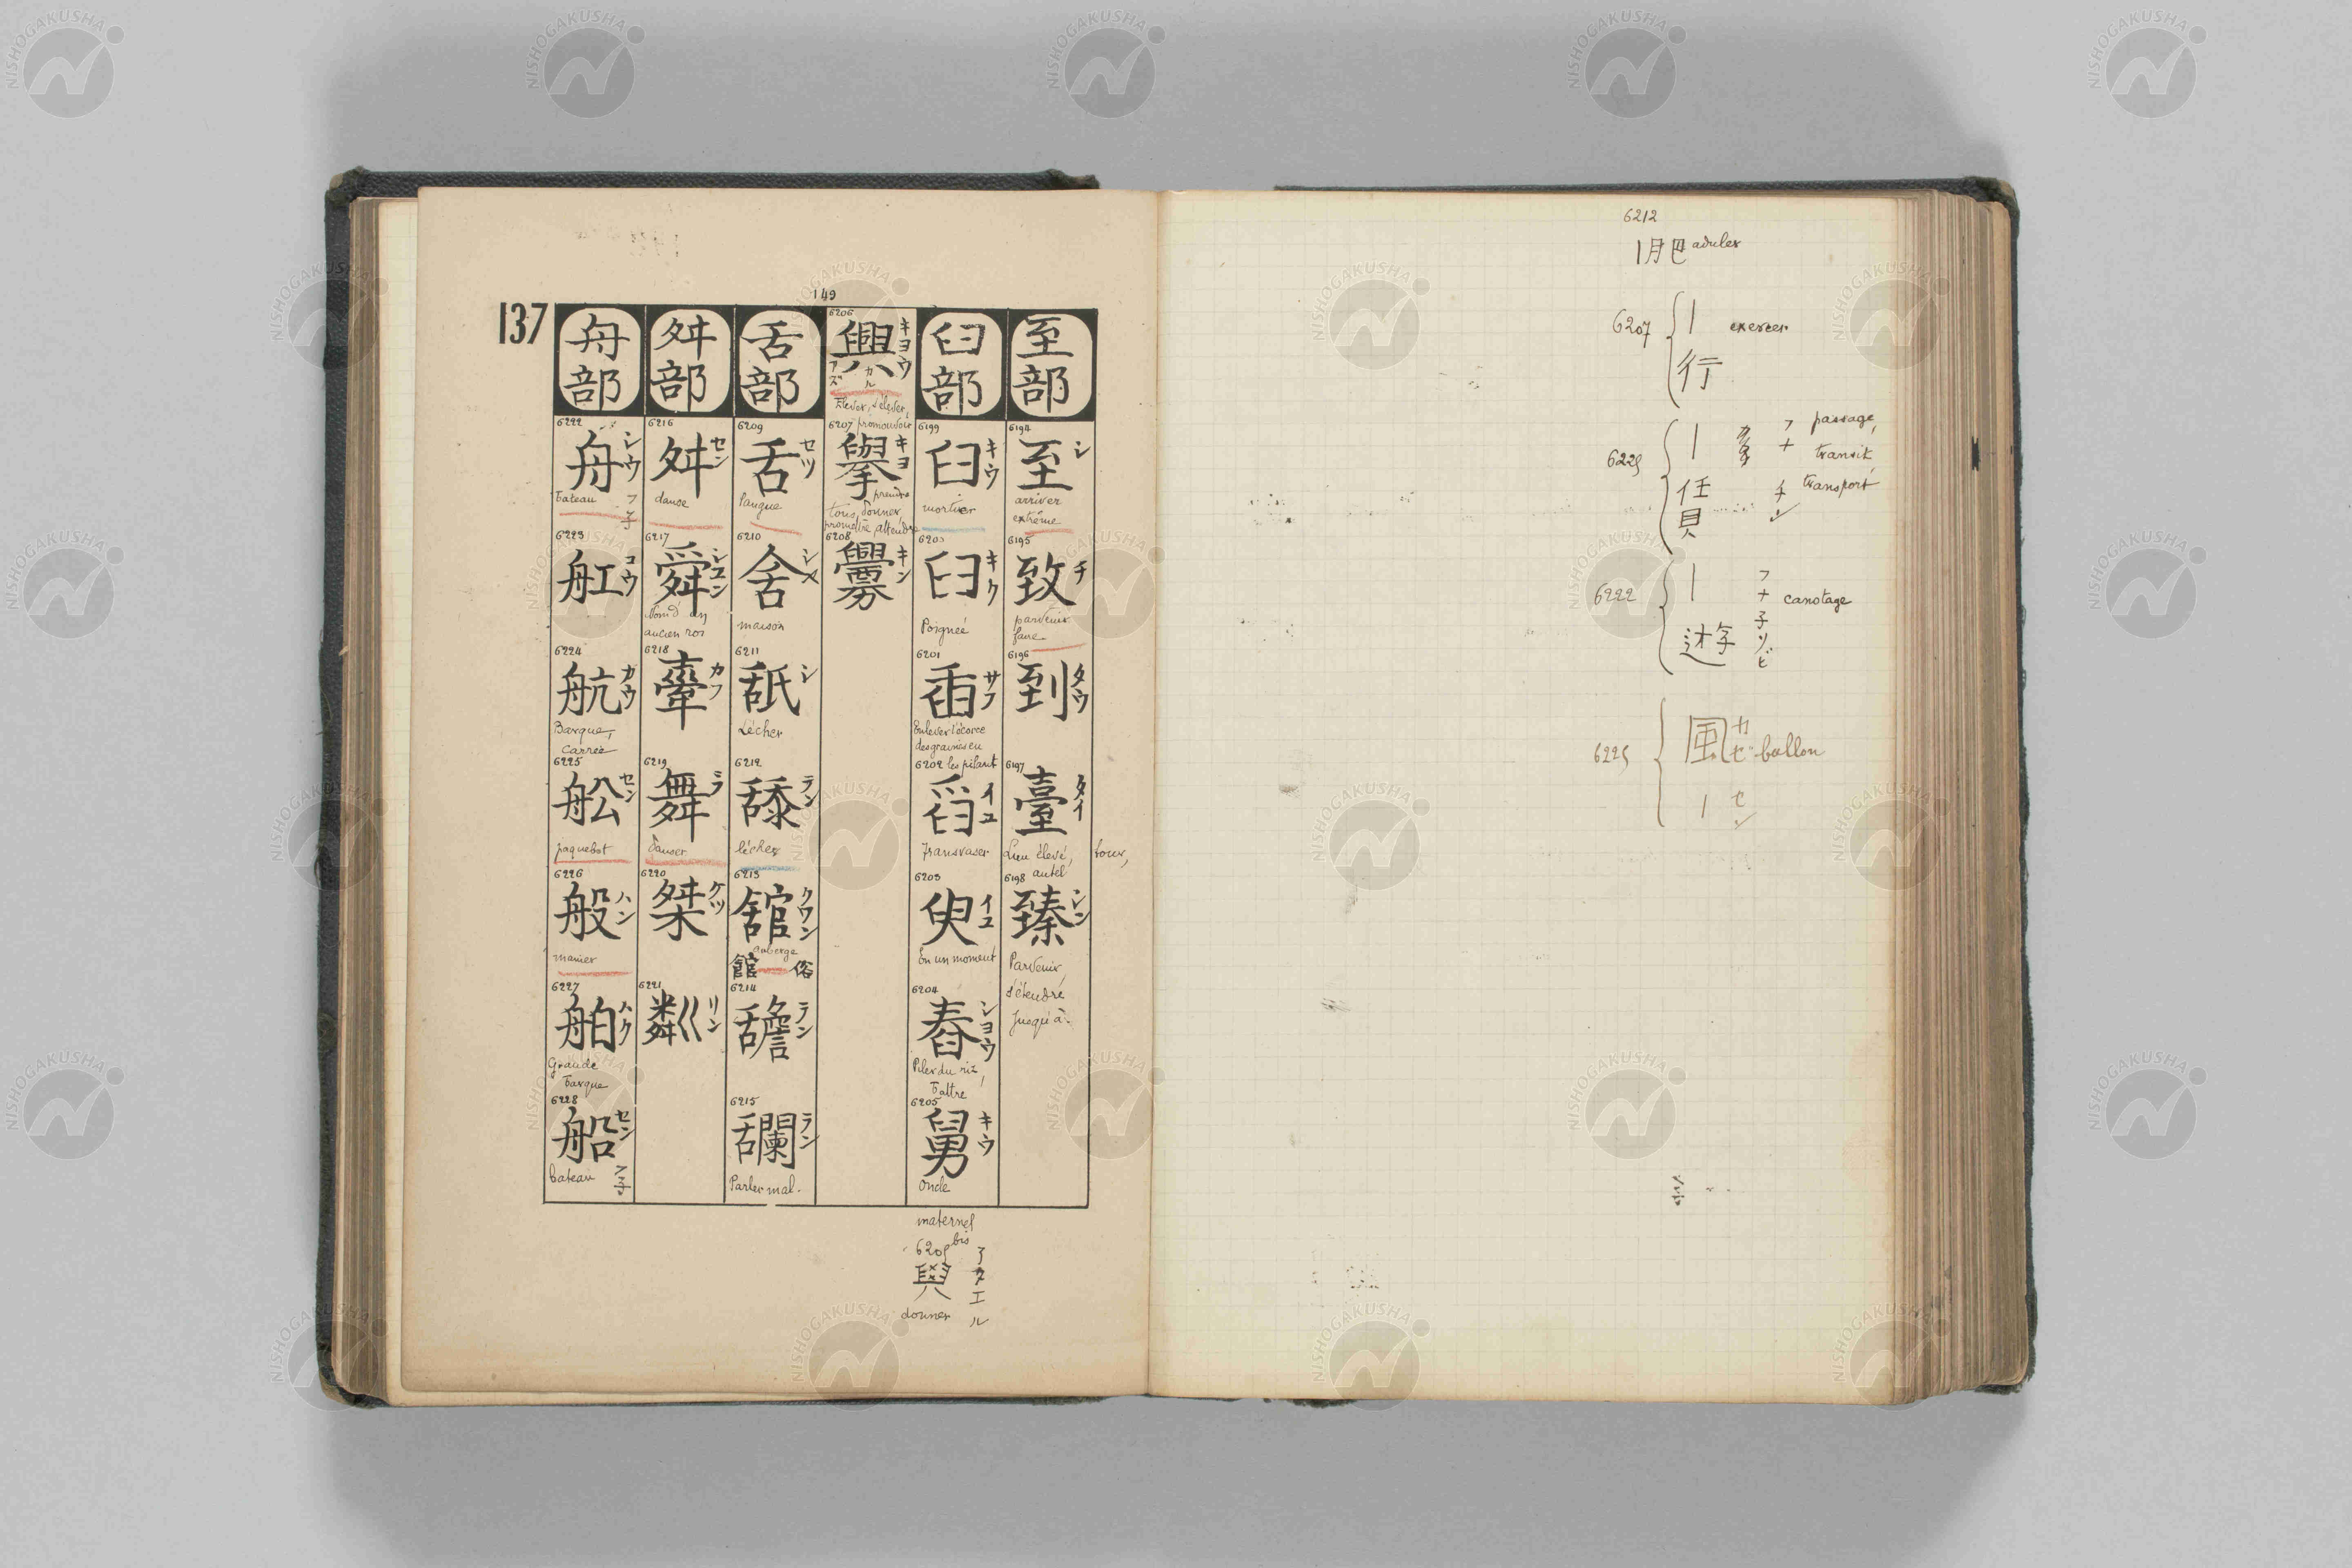 149
137
至部
6194
至 シ
arriver
extrême
6195
致 チ
parvenir
faire
6196
到 タウ
6197
臺 タイ
Lieu élevé, tour,
autel
6198
臻 シン
Parvenir,
s'étendre
jusqu'à
臼部
6199
臼 キウ
mortier
6200
𦥑 キク
Poignée
6201
臿 サフ
Enlever l'écorce
des graines en
les pilant
6202
舀 イユ
Transvaser
6203
臾 イユ
En un moment
6204
舂 ショウ
Piler du riz,
battre
6205
舅 キウ
Oncle
maternel
6205 bis
與 アタエル
donner
6206
興 キョウ
Elever, s'élever,
promouvoir
6207
擧 キヨ
prendre
tous, donner,
promettre, attendre
6208
釁 キン
舌部
6209
舌 セツ
langue
6210
舍 シメ
maison
6211
舐 シ
Lécher
6212
舔 テン
lécher
6213
舘 クワン
auberge
館 俗
6214
䑙 テン
6215
讕 ラン
Parler mal.
舛部
6216
舛 セン
danse
6217
舜 シユン
Nom d'un
ancien roi
6218
舝 カフ
6219
舞 ブ
danser
6220
桀 ケツ
6221
粼 リン
舟部
6222
舟 シウ
bateau フ子
6223
舡 コウ
6224
航 カウ
Barque,
carrée
6225
舩 セン
paquebot
6226
般 ハン
manier
6227
舶 ハク
Grande
barque
6228
船 セン
bateau フ子
6212
|
aduler
6207 | exercer
行
6225 | passage,
transit,
transport
任 チン
貝
6222 | canotage
フナ子ソビ
6225 風 カセ ballon
| セン